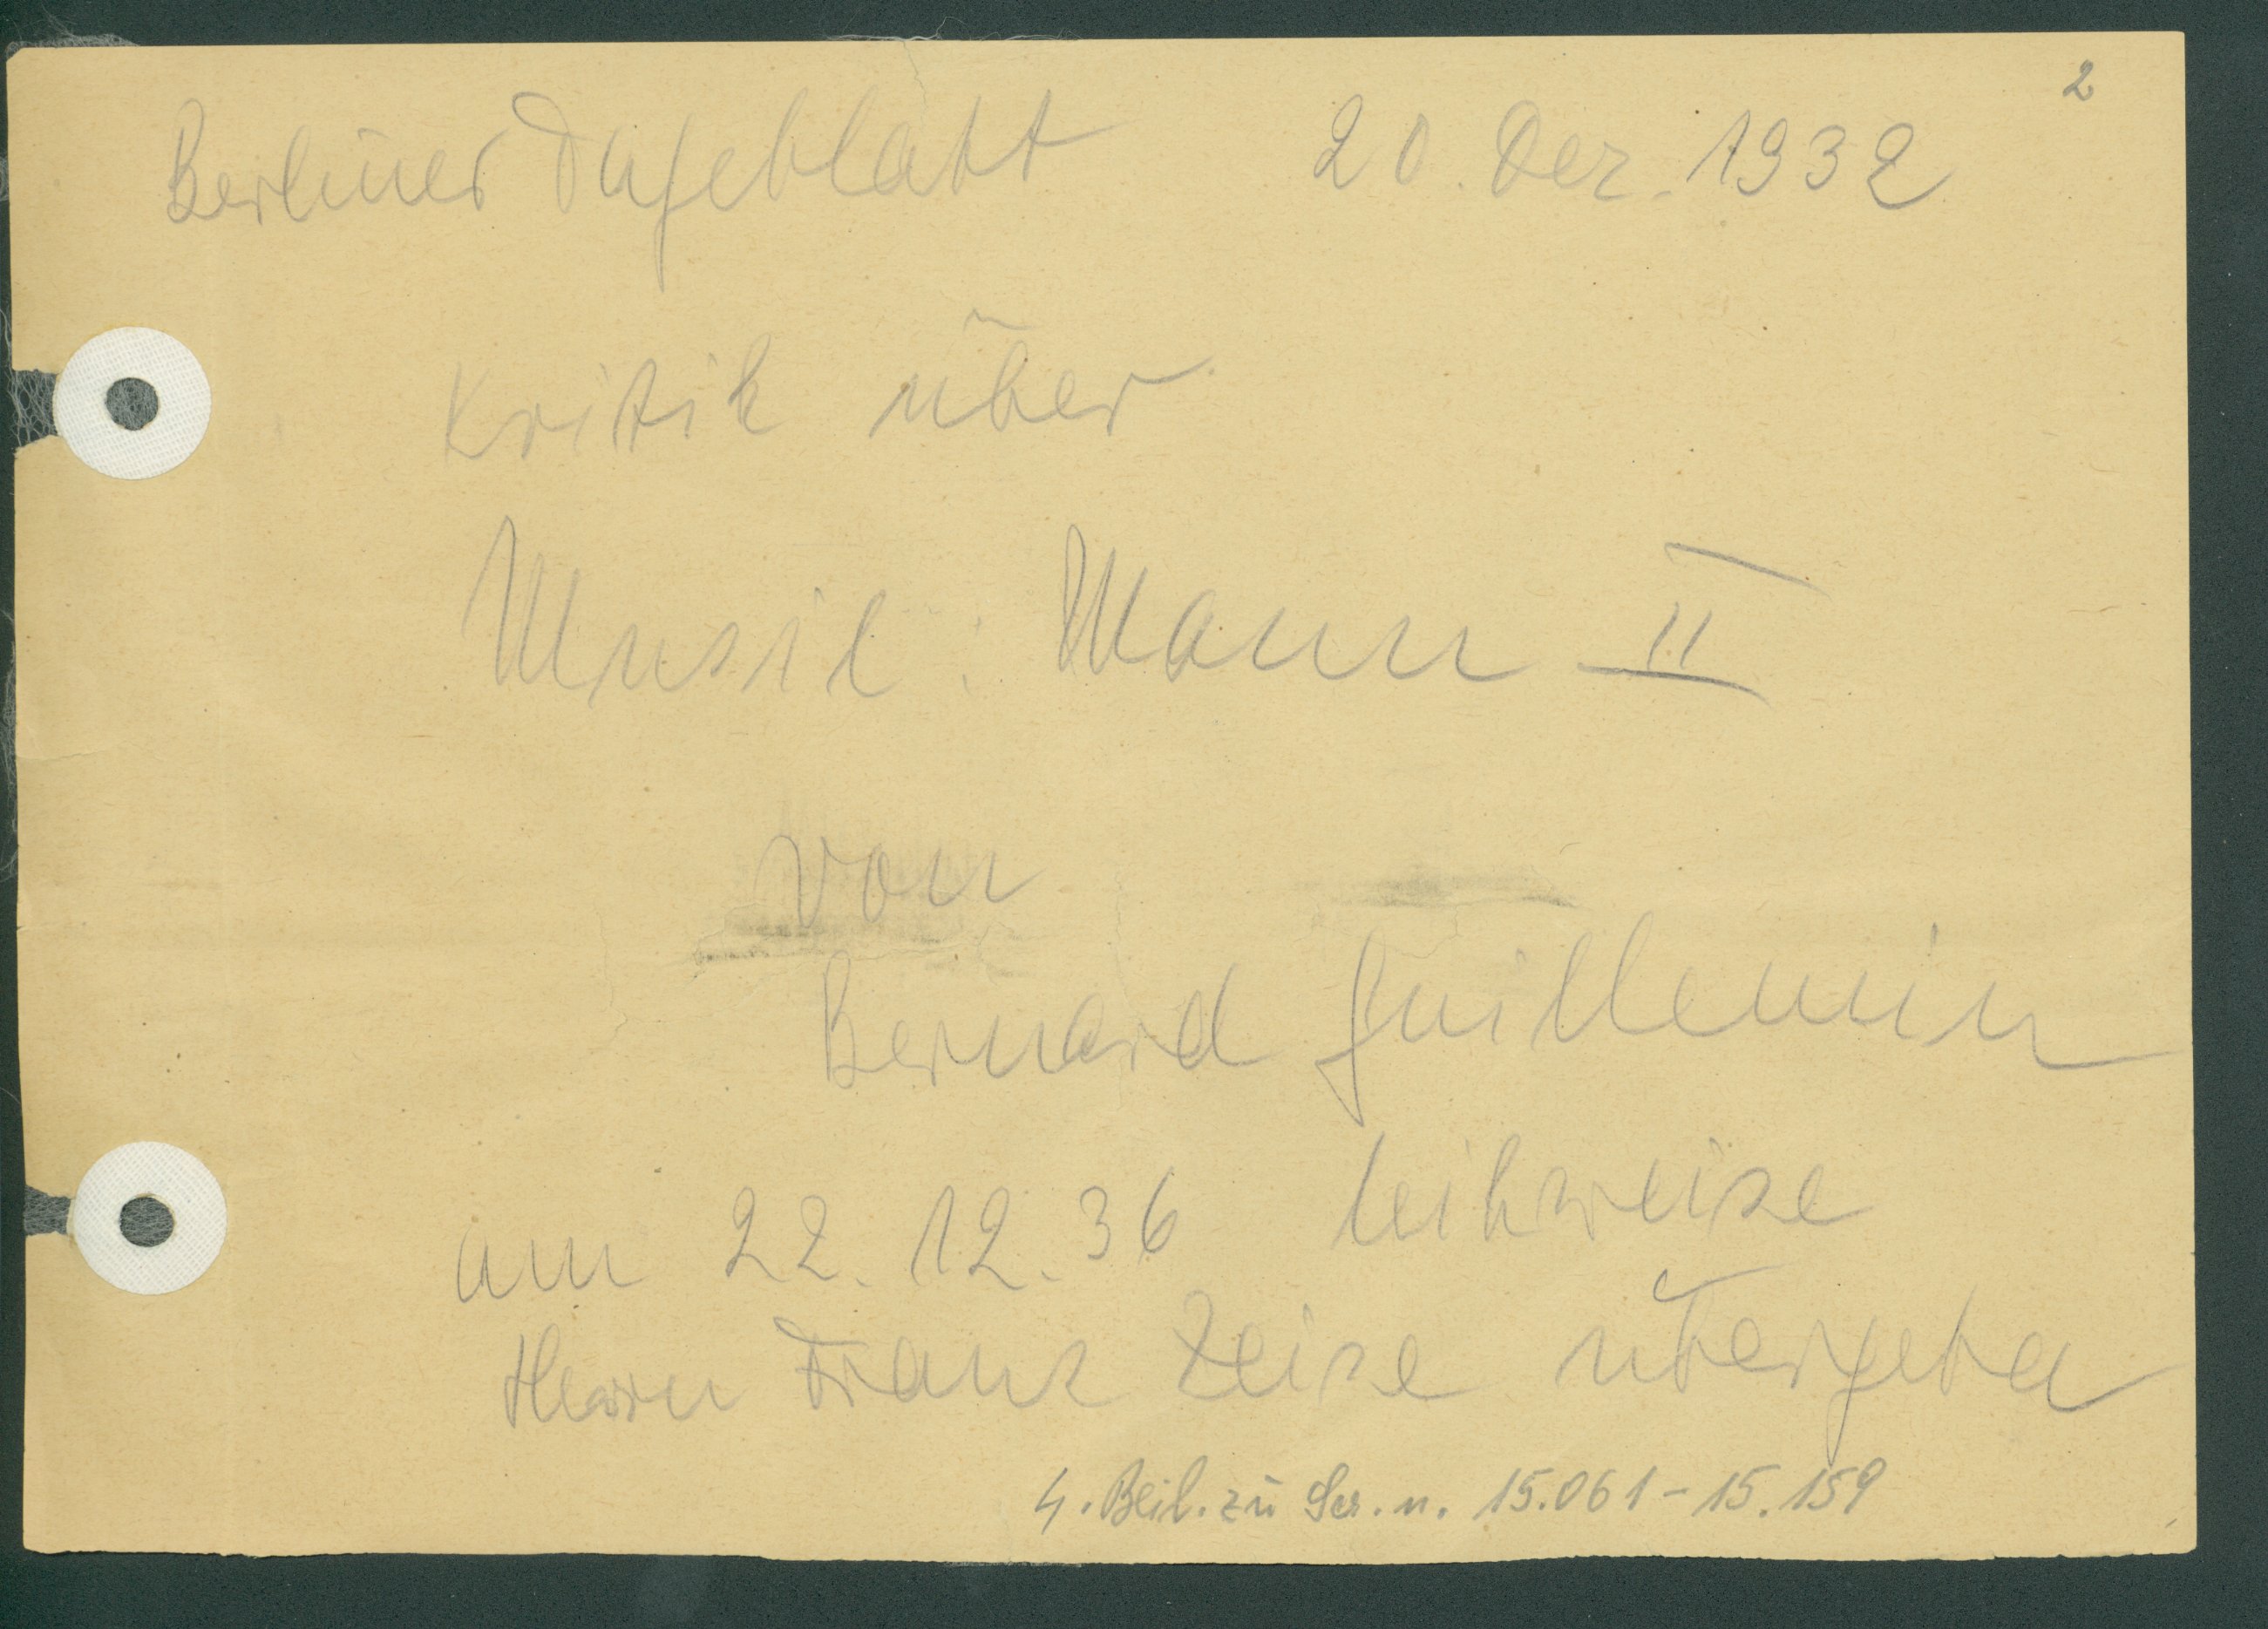 2
Berliner Tageblatt 20. Dez. 1932
Kritik über
Musil: Mann II
von
Bernard Guillemin
am 22. 12. 36 leihweise
Herrn Franz Zeise übergeben
4. Beil. zu Ser. n. 15.061-15.159